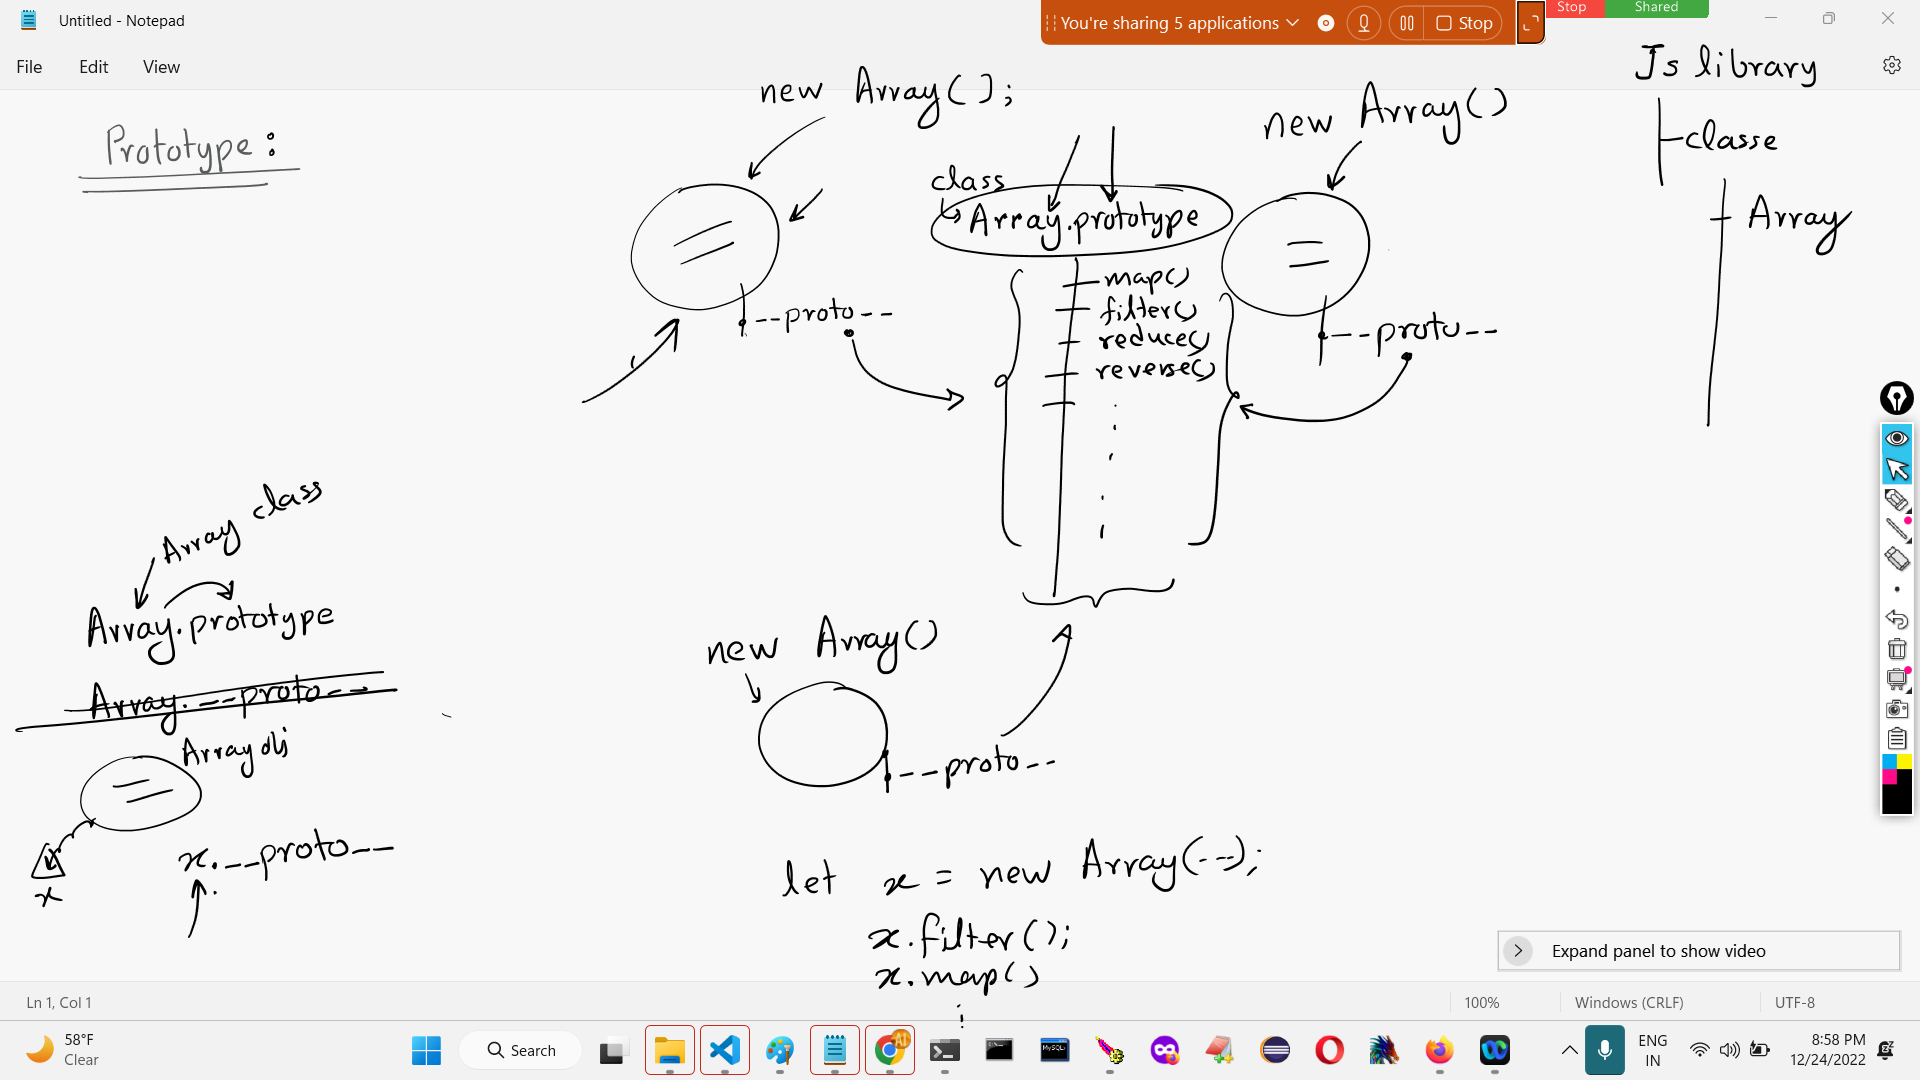 Untitled - Notepad
You're sharing 5 applications
Stop
Stop
Shared
File
Edit
View
Js library
classe
Array
Prototype :
new Array();
--proto--
class
Array.prototype
map()
filter()
reduce()
reverse()
new Array()
--proto--
Array class
Array.prototype
Array.--proto--
Array obj
x
x.--proto--
new Array()
--proto--
let x = new Array(--);
x.filter();
x.map()
Expand panel to show video
Ln 1, Col 1
100%
Windows (CRLF)
UTF-8
58°F
Clear
Search
AI
MySQL
ENG
IN
8:58 PM
12/24/2022